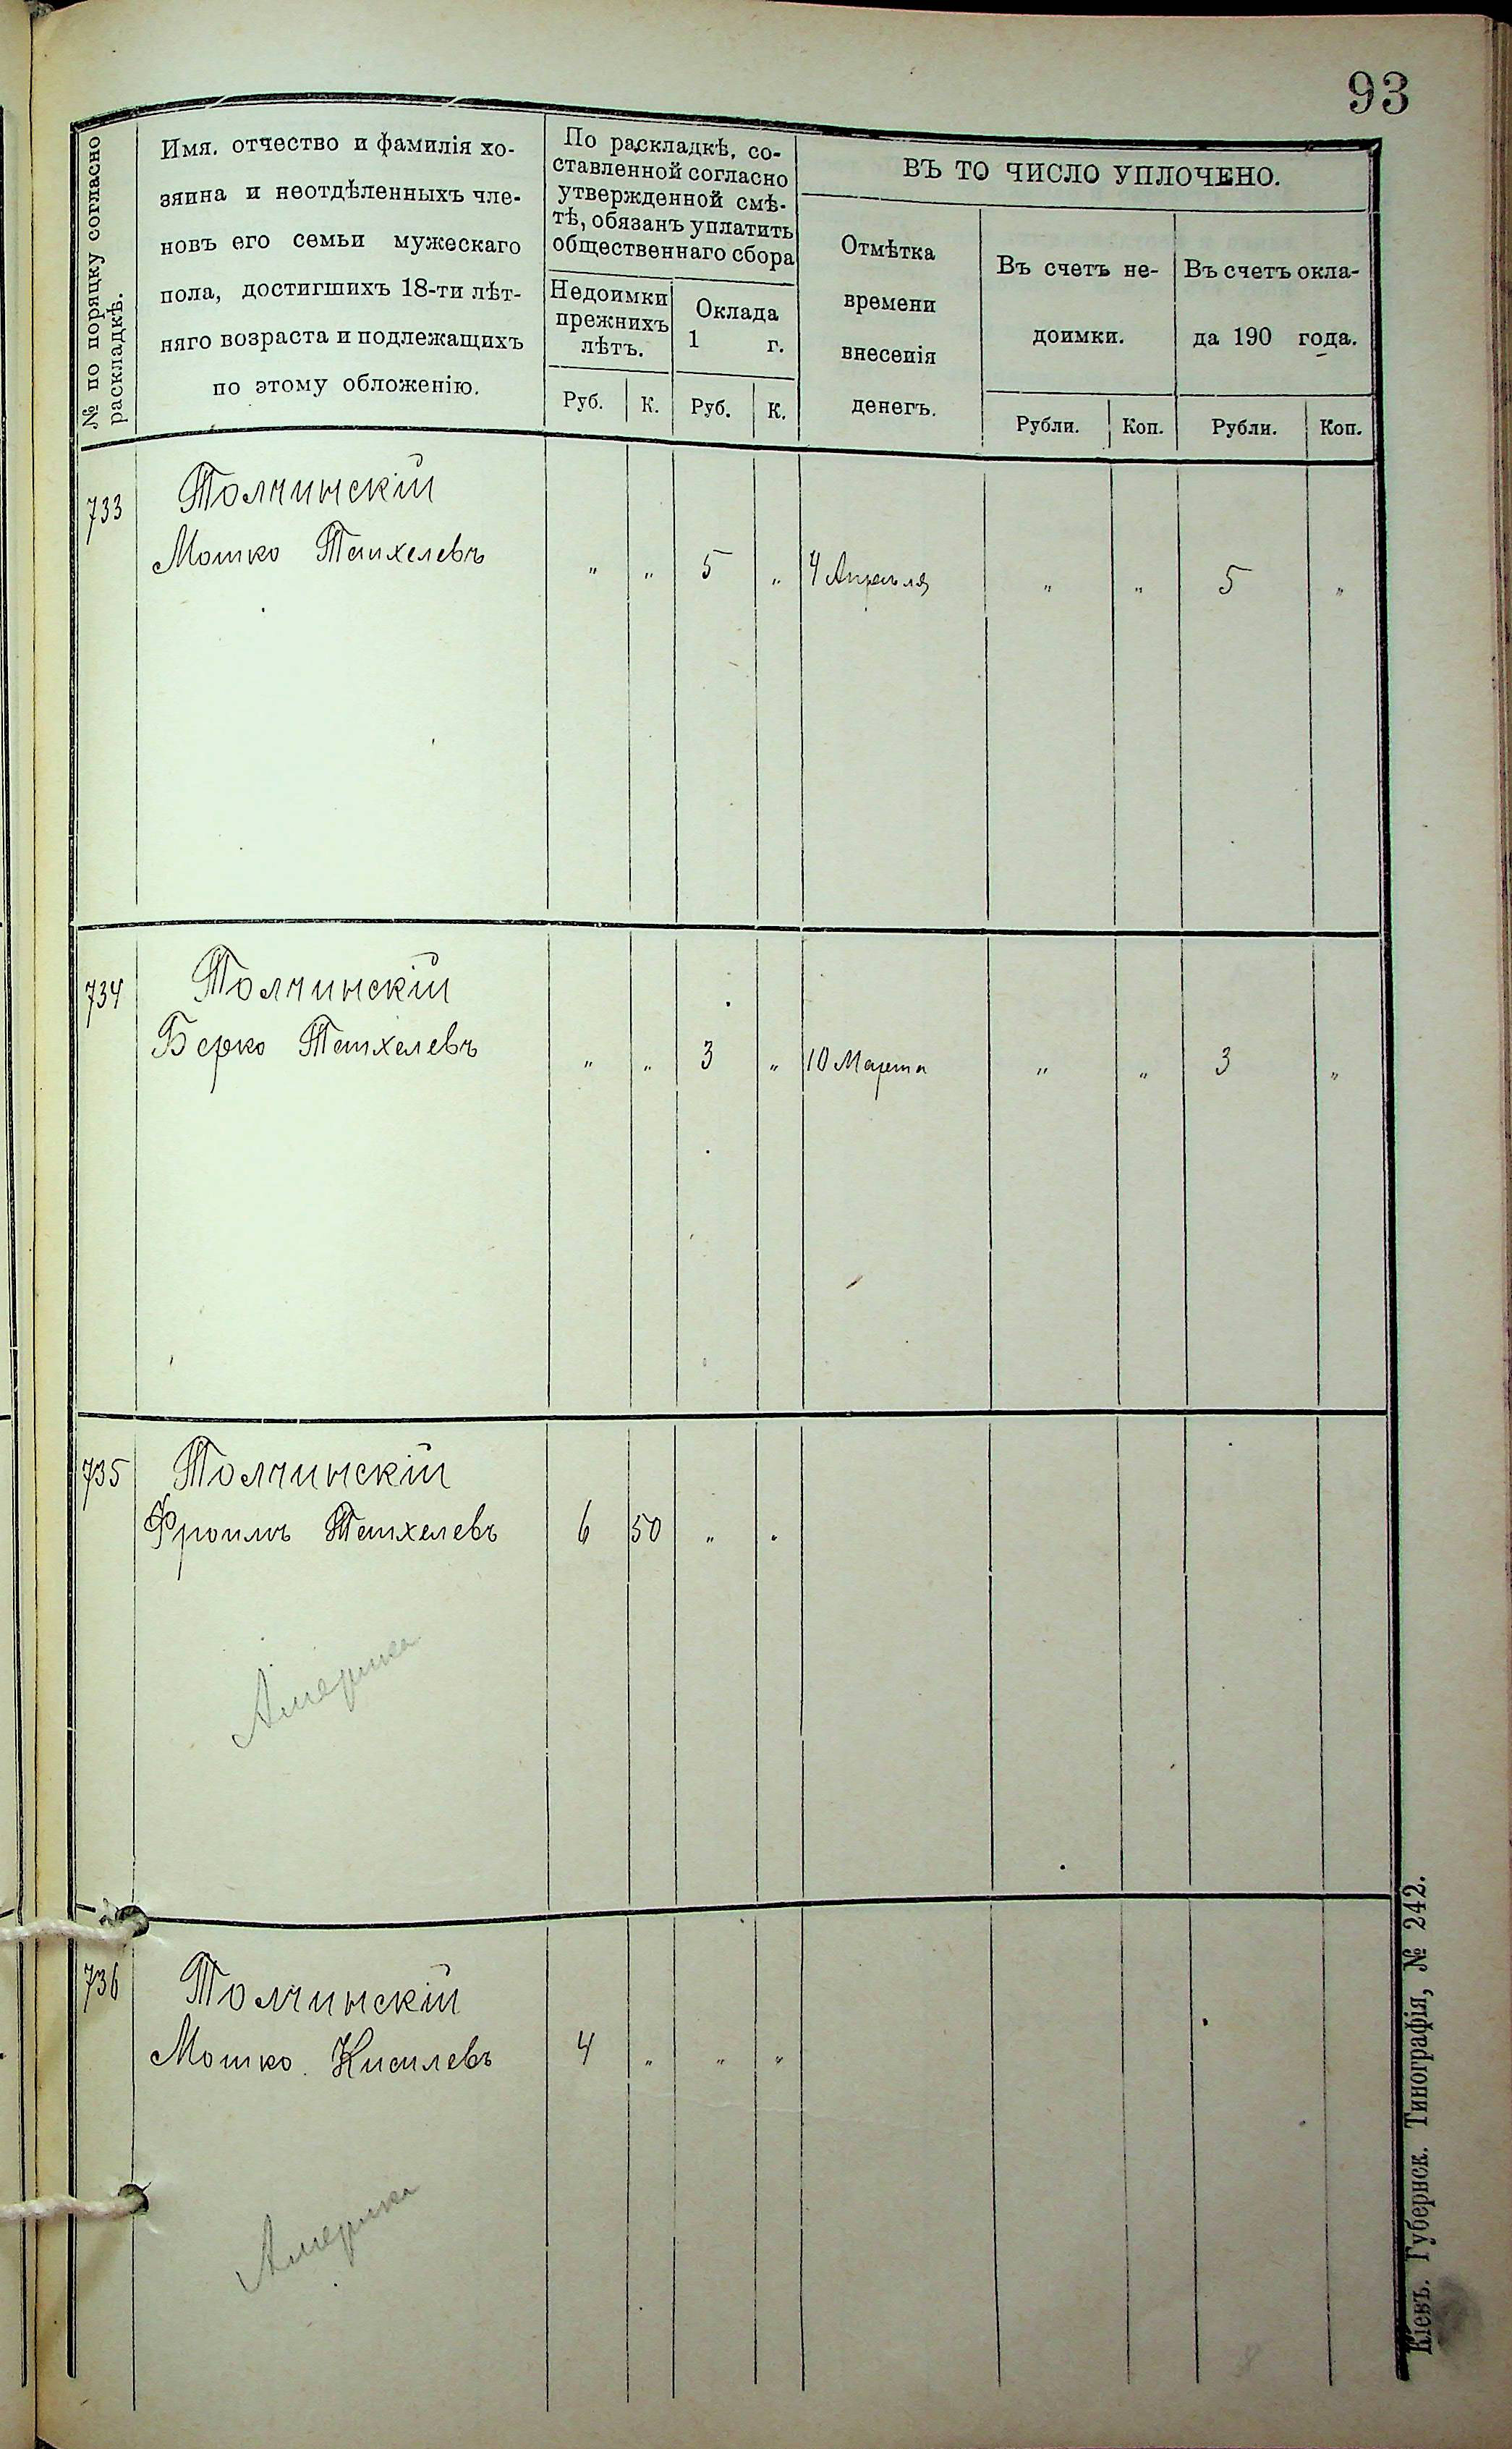 93
№ по поряцку согласно
раскладкѣ.
Имя. отчество и фамилія хо-
зяина и неотдѣленныхъ чле-
новъ его семьи мужескаго
пола, достигшихъ 18-ти лѣт-
няго возраста и подлежащихъ
по этому обложенію.
По раскладкѣ, со-
ставленной согласно
утвержденной смѣ-
тѣ, обязанъ уплатить
общественнаго сбора
Недоимки
прежнихъ
лѣтъ.
Оклада
1 г.
Руб. К. Руб. К.
ВЪ ТО ЧИСЛО УПЛОЧЕНО.
Отмѣтка
времени
внесенія
денегъ.
Въ счетъ не-
доимки.
Въ счетъ окла-
да 190 года.
Рубли. Коп. Рубли. Коп.
733 Толчинскій
Мошко " " 5 " 4 Апрѣля " " 5 "
734 Толчинскій
Берко " " 3 " 10 Марта " " 3 "
735 Толчинскій
Фроимъ 6 50 " "
Америка
736 Толчинскій
Мошко Кисилевъ 4 " " "
Америка
Кіевъ. Губернск. Типографія, № 242.